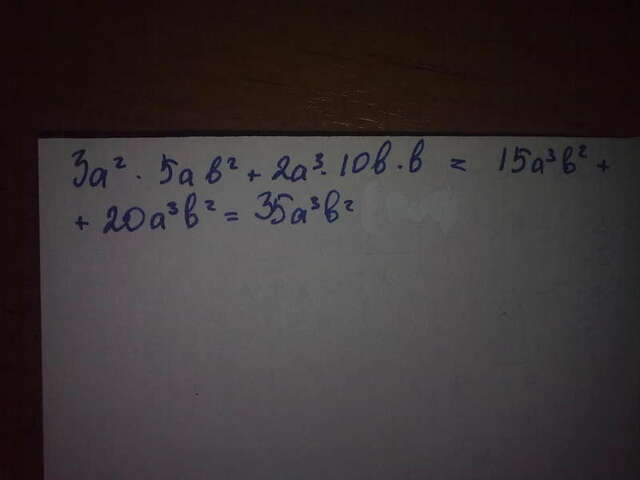 3a² · 5ab² + 2a³ · 10b · b = 15a³b² +
+ 20a³b² = 35a³b²